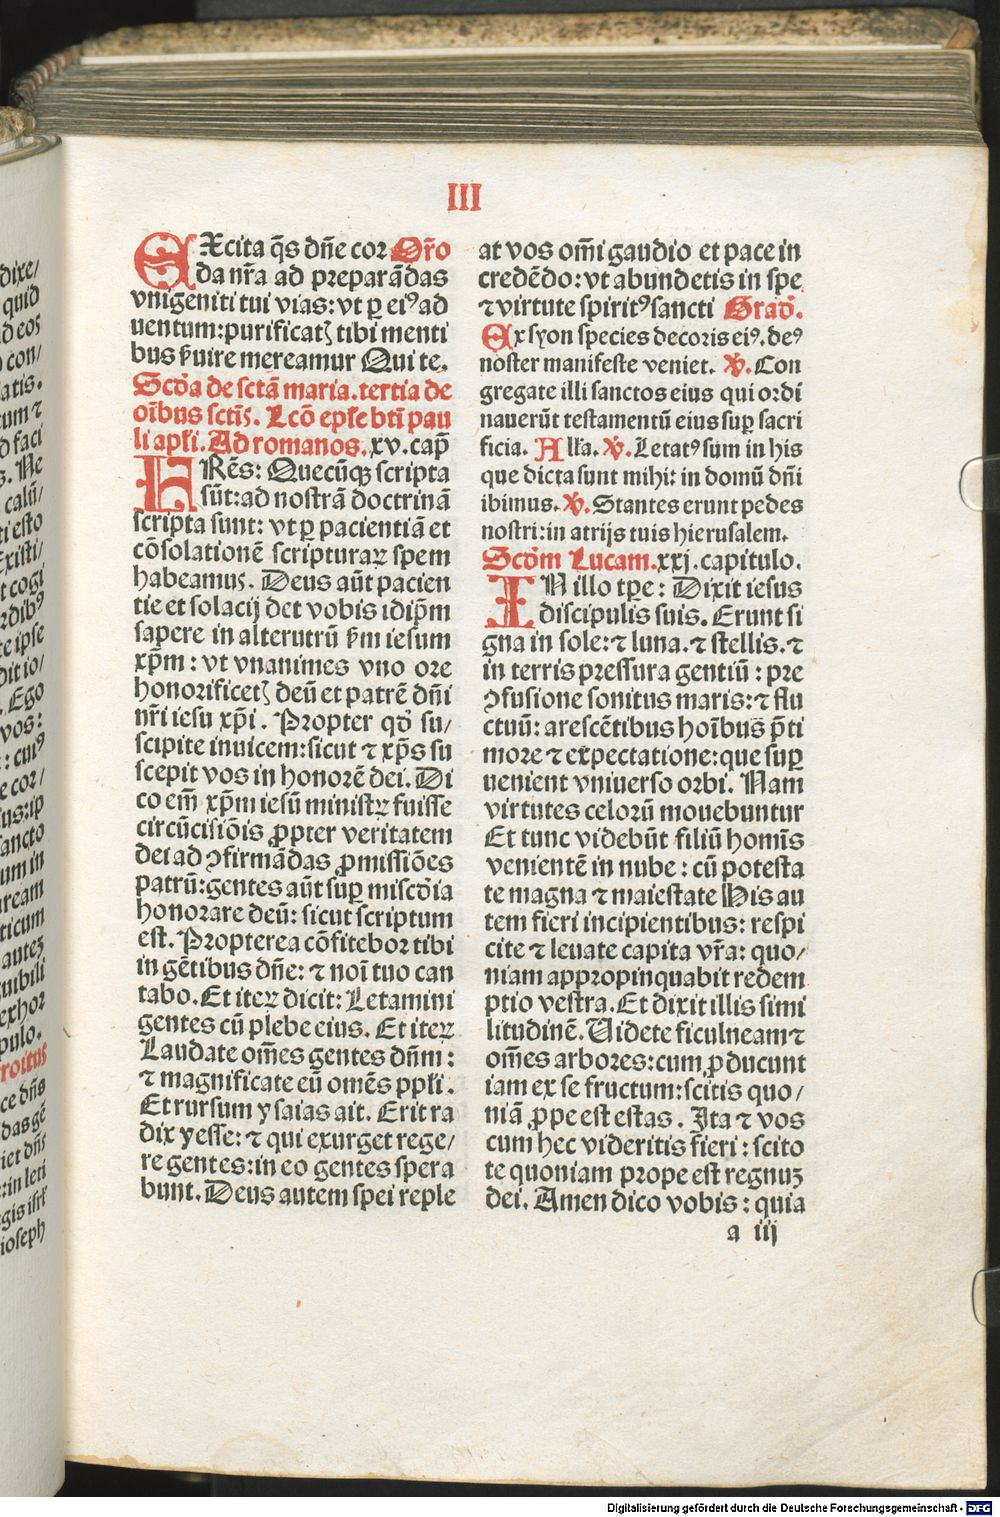 III
EXcita q̄s dn̄e cor Or̄o
da nr̄a ad preparādas
vnigeniti tui vias: vt ꝑ eiꝰ ad
uentum: purificatꝫ tibi menti
bus ẜuire mereamur Qui te.
Scd̄a de sctā maria. tertia de
oībus sctīs. Lcō epl̄e btī pau
li apl̄i. Ad romanos. xv. cap̄
FRēs: Quecūqꝫ scripta
sūt: ad nostrā doctrinā
scripta sunt: vt ꝑ pacientiā et
cōsolationē scripturaꝝ spem
habeamus. Deus aūt pacien
tie et solacij det vobis idip̄m
sapere in alterutrū ẜm iesum
xp̄m: vt vnanimes vno ore
honorificetꝫ deū et patrē dn̄i
nr̄i iesu xp̄i. Propter qd̄ su/
scipite inuicem: sicut ⁊ xp̄s su
scepit vos in honorē dei. Di
co em̄ xp̄m iesū ministꝝ fuisse
circūcisiōis ꝓpter veritatem
dei ad ꝯfirmādas ꝓmissiōes
patrū: gentes aūt suꝑ miscd̄ia
honorare deū: sicut scriptum
est. Propterea cōfitebor tibi
in gētibus dn̄e: ⁊ noī tuo can
tabo. Et iteꝝ dicit: Letamini
gentes cū plebe eius. Et iteꝝ
Laudate om̄es gentes dn̄m:
⁊ magnificate eū omēs ppl̄i.
Et rursum ysaias ait. Erit ra
dix yesse: ⁊ qui exurget rege/
re gentes: in eo gentes spera
bunt. Deus autem spei reple
at vos om̄i gaudio et pace in
credēdo: vt abundetis in spe
⁊ virtute spiritꝰ sancti Grad̄.
Ex syon species decoris eiꝰ. deꝰ
noster manifeste veniet. ℣. Con
gregate illi sanctos eius qui ordi
nauerūt testamentū eius suꝑ sacri
ficia. All̄a. ℣. Letatꝰ sum in his
que dicta sunt mihi: in domū dn̄i
ibimus. ℣. Stantes erunt pedes
nostri: in atrijs tuis hierusalem.
Scd̄m Lucam. xxj. capitulo.
IN illo tp̄e: Dixit iesus
discipulis suis. Erunt si
gna in sole: ⁊ luna. ⁊ stellis. ⁊
in terris pressura gentiū: pre
ꝯfusione sonitus maris: ⁊ flu
ctuū: arescētibus hoībus p̄ti
more ⁊ expectatione: que suꝑ
uenient vniuerso orbi. Nam
virtutes celorū mouebuntur
Et tunc videbūt filiū homīs
venientē in nube: cū potesta
te magna ⁊ maiestate His au
tem fieri incipientibus: respi
cite ⁊ leuate capita vr̄a: quo/
niam appropinquabit redem
ptio vestra. Et dixit illis simi
litudinē. Uidete ficulneam ⁊
om̄es arbores: cum ꝓducunt
iam ex se fructum: scitis quo/
niā ꝓpe est estas. Ita ⁊ vos
cum hec videritis fieri: scito
te quoniam prope est regnuꝫ
dei. Amen dico vobis: quia
a iij
Digitalisierung gefördert durch die Deutsche Forschungsgemeinschaft - DFG